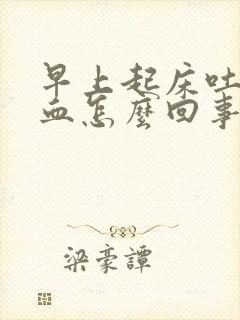 早上起床吐
血怎麼回事
梁豪譚